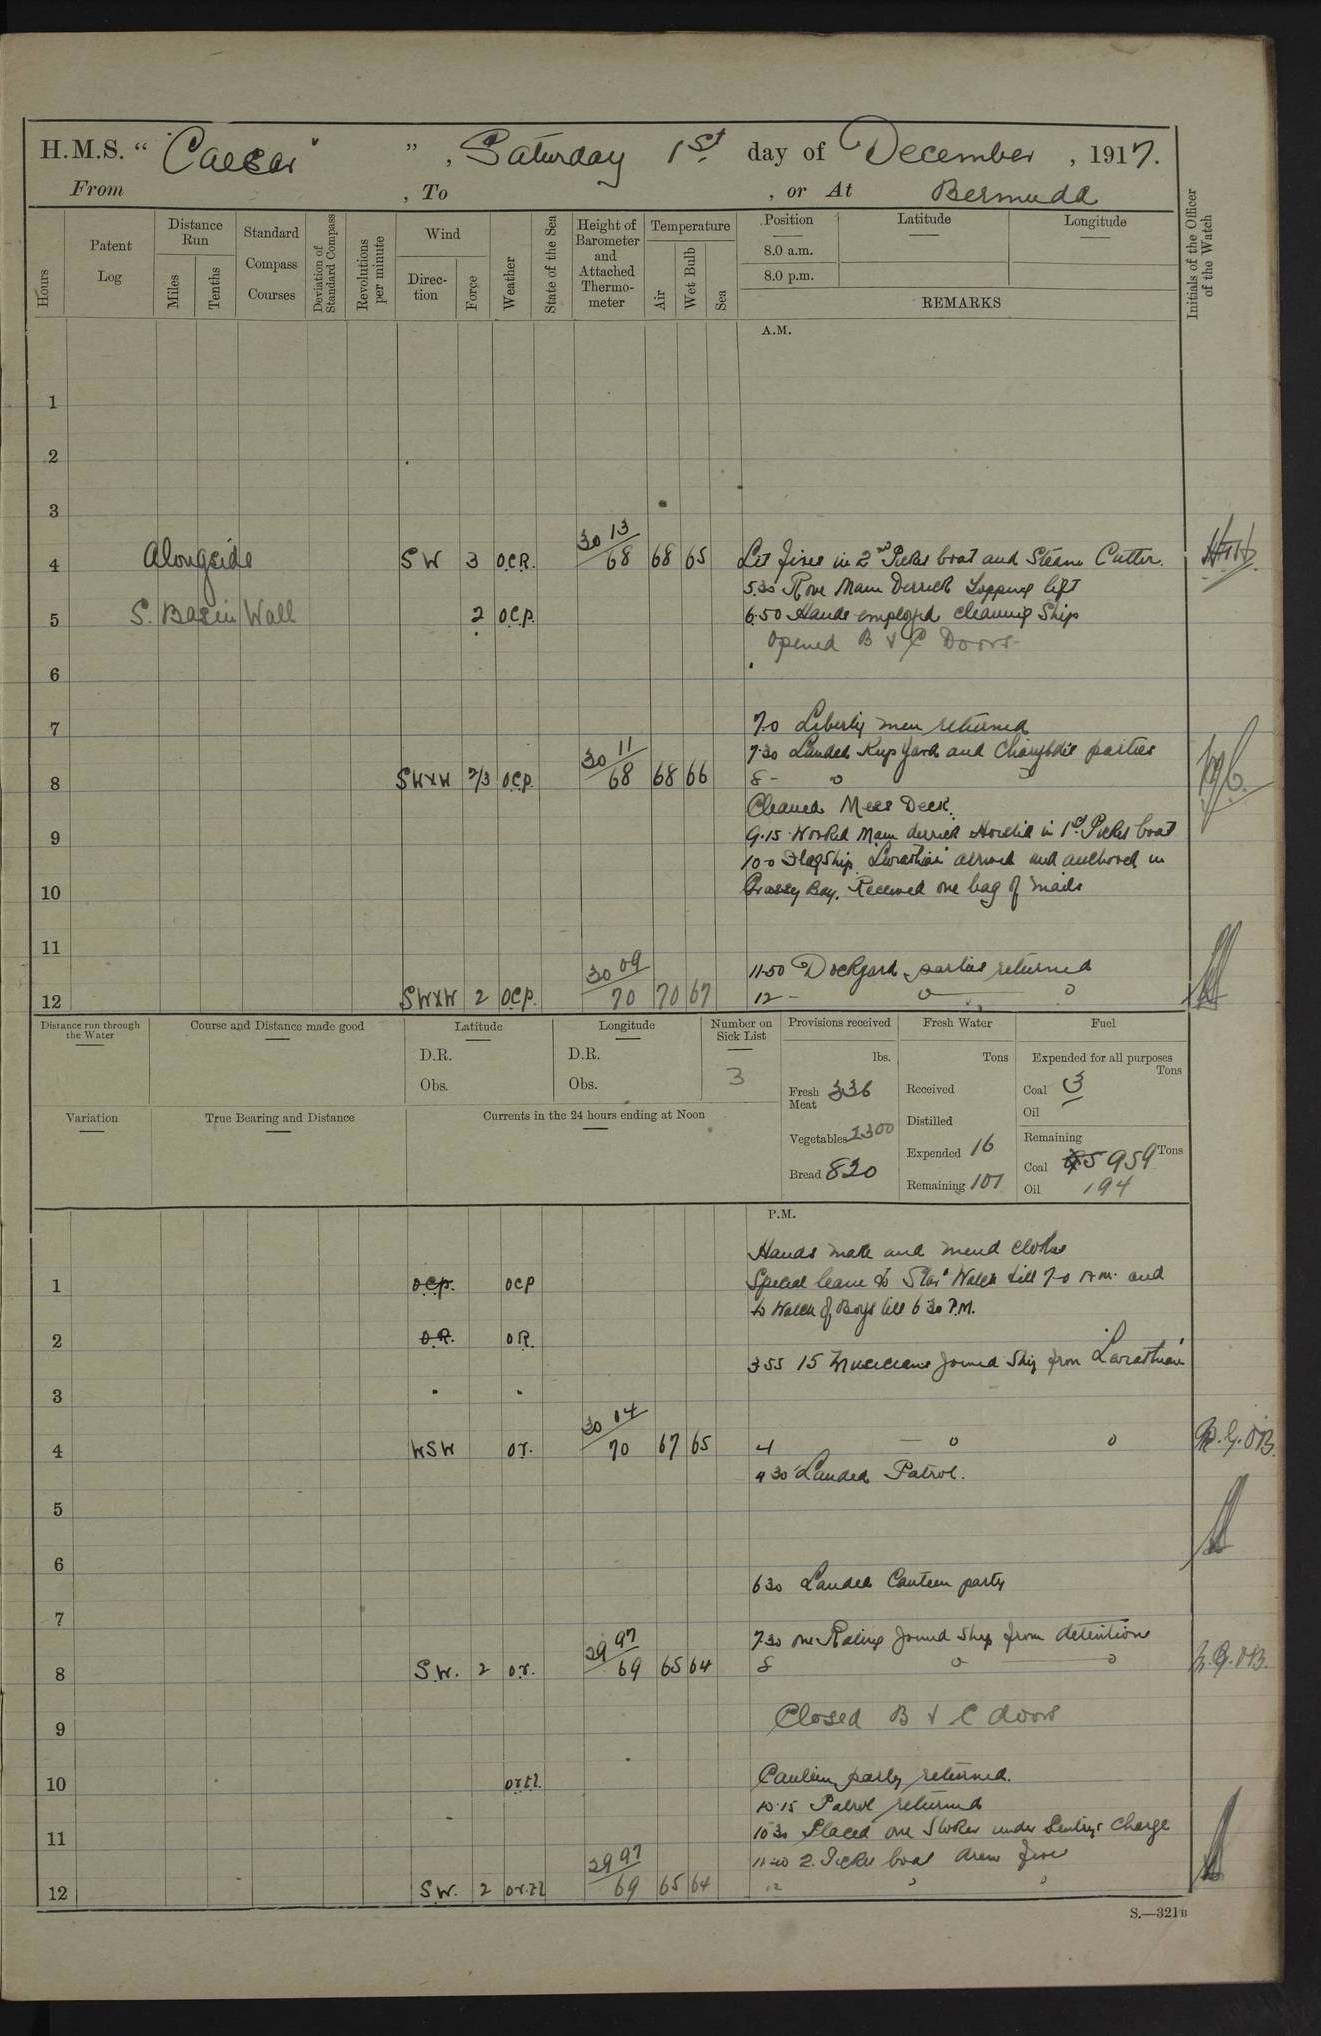 H.M.S. “ "Caesar" ” , Saturday 1st day of December , 1917.
From , To , or At Bermuda
Hours Patent Log Distance Run Miles Tenths Standard Compass Courses Deviation of Standard Compass Revolutions per minute Wind Direction Force Weather State of the Sea Height of Barometer and Attached Thermometer Temperature Air Wet Bulb Sea Position Latitude Longitude
8.0 a.m.
8.0 p.m.
REMARKS
Initials of the Officer of the Watch
A.M.
1
2
3
30 13
4 Alongside SW 3 O.C.R. 68 68 65 Lit fires in 2nd Picket boat and Steam Cutter.
5.30 Rove Main Derrick Topping lift
5 S. Basin Wall 2 O.C.P. 6.50 Hands employed cleaning Ship
Opened B & C Doors
6
7 7.0 Liberty men returned
30 11 7.30 Landed Yard and Charybdis parties
8 SWxW 2/3 O.C.P. 68 68 66 8 -
Cleaned Mess Deck.
9 9.15 Worked Main derrick Hoisted in 1st Picket boat
10-0 Flagship "Leviathan" arrived and anchored in
10 Grassy Bay. Received one bag of mails
11
30 09 11-50 Dockyard parties returned
12 SWxW 2 O.C.P. 70 70 67 12 -
Distance run through the Water Course and Distance made good Latitude Longitude Number on Sick List Provisions received Fresh Water Fuel
D.R. D.R. lbs. Tons Expended for all purposes Tons
Obs. Obs. 3 Fresh Meat 336 Received Coal 3
Oil
Variation True Bearing and Distance Currents in the 24 hours ending at Noon Vegetables 1300 Distilled Remaining
Expended 16 Coal 5959 Tons
Bread 820 Remaining 107 Oil 194
P.M.
Hands make and mend clothes
1 OCP. OCP Special leave to Star'd Watch till 7-0 A.M. and
to Watch of Boys till 6 30 P.M.
2 O.R. O.R.
3 55 15 Musicians joined Ship from "Leviathan"
3
30 04
4 WSW O.r. 70 67 65 4 P.G.O'B.
4 30 Landed Patrol.
5
6
6 30 Landed Canteen party
7
29 97 7.30 one Rating joined Ship from detention
8 S.W. 2 o.r. 69 65 64 8 P.G.O'B.
Closed B & C doors
9
10 o.r.t.l. Canteen party returned.
10.15 Patrol returned
11 10 30 Placed one Stoker under Sentry's charge
29 97 2. Picket boat drew fires
12 S.W. 2 o.r.t.l 69 65 64 12
S.—321B